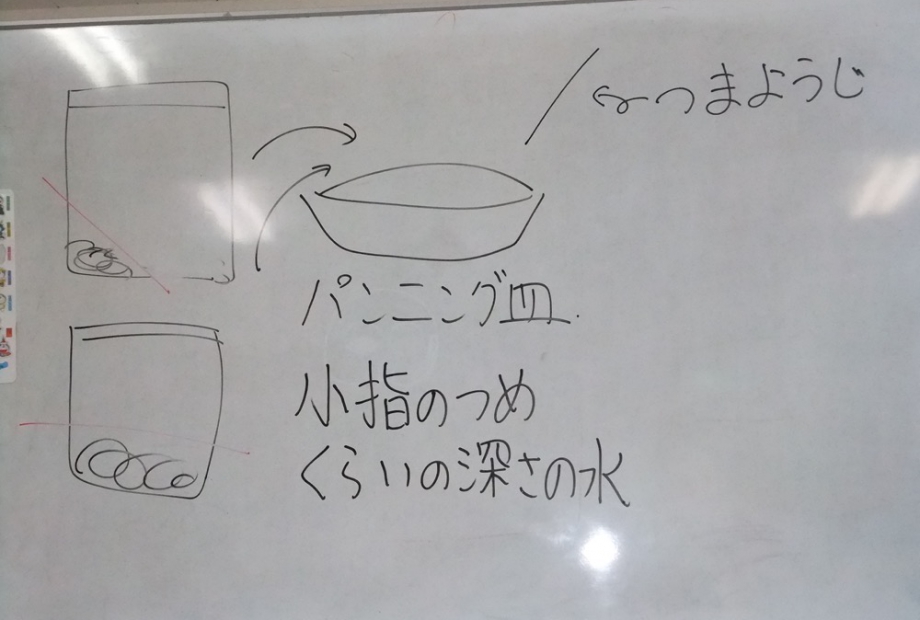 つまようじ
パンニング皿
小指のつめ
くらいの深さの水